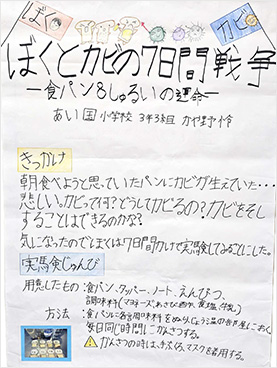 ぼく
カビ
ぼくとカビの7日間戦争
ー食パン8しゅるいの運命ー
あい国小学校 3年3組 かや野怜
きっかけ
朝食べようと思っていたパンにカビが生えていた…
悲しい。カビって何?どうしてカビるの?カビをそし
することはできるのかな?
気になったのでぼくは7日間かけて実験してみることにした。
実験じゅんび
用意したもの:食パン、タッパー、ノート、えんぴつ、
方法:食パンに各調味料をぬり、
毎日同じ時間にかんさつする。
かんさつの時は、手ぶくろ、マスクを着用する。